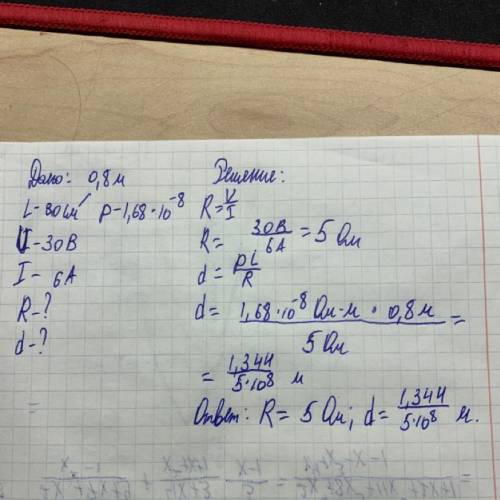 Дано: 0,8 м
L - 80 см ρ - 1,68·10⁻⁸
U - 30 В
I - 6 А
R - ?
d - ?
=
Решение:
R = U/I
R = 30 В/6 А = 5 Ом
d = ρL/R
d = 1,68·10⁻⁸ Ом-м · 0,8 м/5 Ом =
= 1,344/5·10⁸ м
Ответ: R = 5 Ом; d = 1,344/5·10⁸ м.